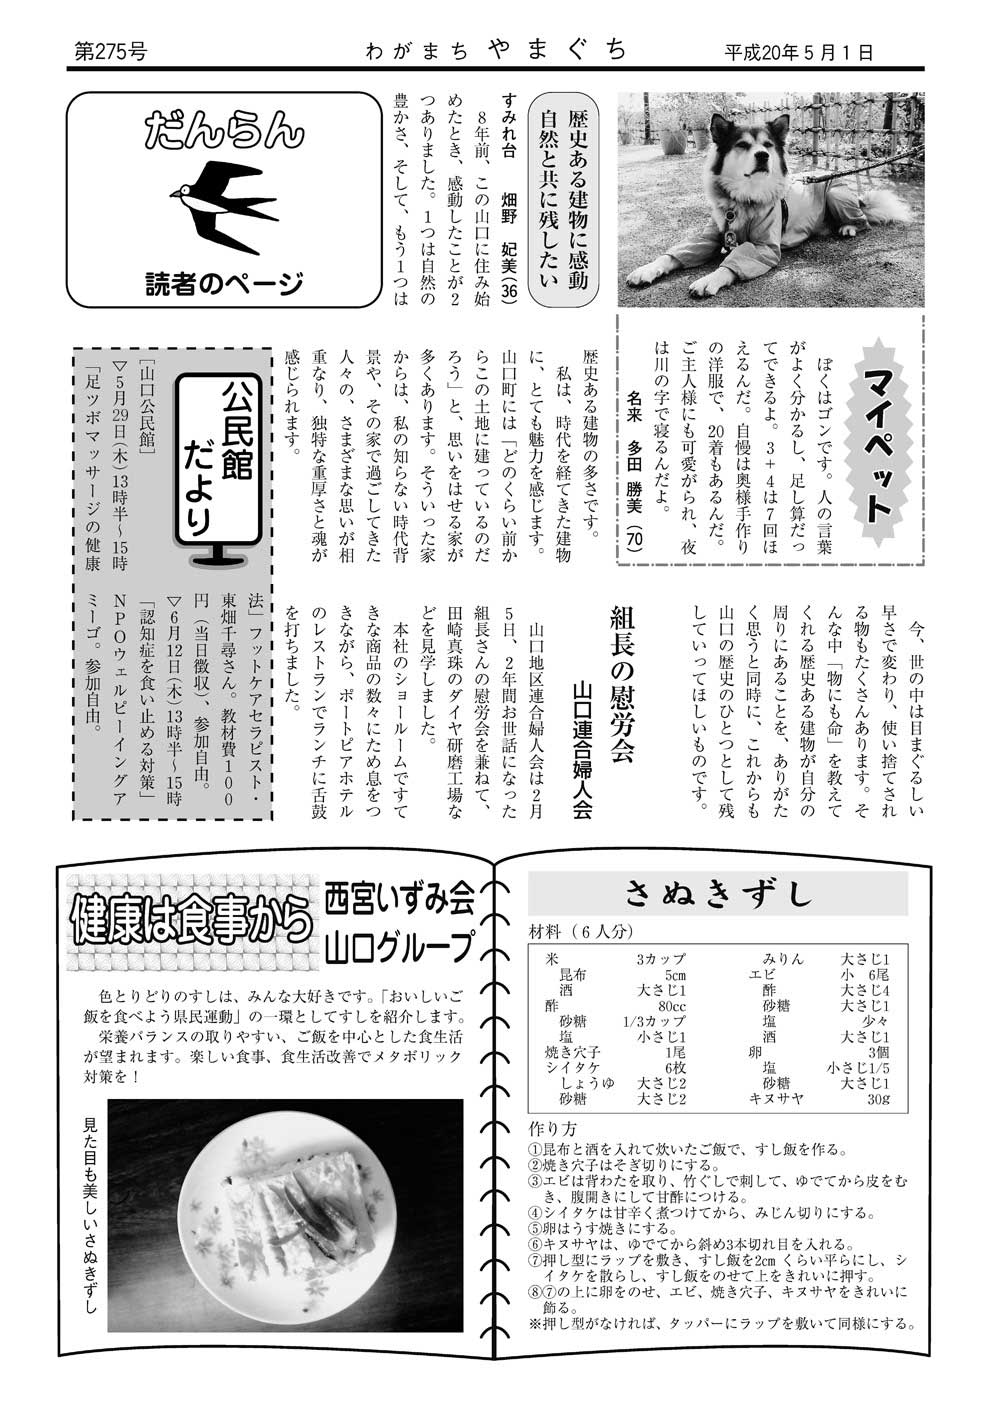 第275号
わがまち やまぐち
平成20年5月1日
だんらん
読者のページ
歴史ある建物に感動
自然と共に残したい
すみれ台 畑野 妃美(36)
8年前、この山口に住み始
めたとき、感動したことが2
つありました。1つは自然の
豊かさ、そして、もう1つは
歴史ある建物の多さです。
私は、時代を経てきた建物
に、とても魅力を感じます。
山口町には「どのくらい前か
らこの土地に建っているのだ
ろう」と、思いをはせる家が
多くあります。そういった家
からは、私の知らない時代背
景や、その家で過ごしてきた
人々の、さまざまな思いが相
重なり、独特な重厚さと魂が
感じられます。
今、世の中は目まぐるしい
早さで変わり、使い捨てされ
る物もたくさんあります。そ
んな中「物にも命」を教えて
くれる歴史ある建物が自分の
周りにあることを、ありがた
く思うと同時に、これからも
山口の歴史のひとつとして残
していってほしいものです。
マイペット
ぼくはゴンです。人の言葉
がよく分かるし、足し算だっ
てできるよ。3+4は7回ほ
えるんだ。自慢は奥様手作り
の洋服で、20着もあるんだ。
ご主人様にも可愛がられ、夜
は川の字で寝るんだよ。
名来 多田 勝美(70)
組長の慰労会
山口連合婦人会
山口地区連合婦人会は2月
5日、2年間お世話になった
組長さんの慰労会を兼ねて、
田崎真珠のダイヤ研磨工場な
どを見学しました。
本社のショールームですて
きな商品の数々にため息をつ
きながら、ポートピアホテル
のレストランでランチに舌鼓
を打ちました。
公民館
だより
[山口公民館]
▽5月29日(木)13時半〜15時
「足ツボマッサージの健康
法」フットケアセラピスト・
東畑千尋さん。教材費100
円(当日徴収)、参加自由。
▽6月12日(木)13時半〜15時
「認知症を食い止める対策」
NPOウェルビーイングア
ミーゴ。参加自由。
健康は食事から
西宮いずみ会
山口グループ
色とりどりのすしは、みんな大好きです。「おいしいご
飯を食べよう県民運動」の一環としてすしを紹介します。
栄養バランスの取りやすい、ご飯を中心とした食生活
が望まれます。楽しい食事、食生活改善でメタボリック
対策を!
見た目も美しいさぬきずし
さぬきずし
材料(6人分)
米 3カップ
昆布 5cm
酒 大さじ1
酢 80cc
砂糖 1/3カップ
塩 小さじ1
焼き穴子 1尾
シイタケ 6枚
しょうゆ 大さじ2
砂糖 大さじ2
みりん 大さじ1
エビ 小 6尾
酢 大さじ4
砂糖 大さじ1
塩 少々
酒 大さじ1
卵 3個
塩 小さじ1/5
砂糖 大さじ1
キヌサヤ 30g
作り方
①昆布と酒を入れて炊いたご飯で、すし飯を作る。
②焼き穴子はそぎ切りにする。
③エビは背わたを取り、竹ぐしで刺して、ゆでてから皮をむ
き、腹開きにして甘酢につける。
④シイタケは甘辛く煮つけてから、みじん切りにする。
⑤卵はうす焼きにする。
⑥キヌサヤは、ゆでてから斜め3本切れ目を入れる。
⑦押し型にラップを敷き、すし飯を2cmくらい平らにし、シ
イタケを散らし、すし飯をのせて上をきれいに押す。
⑧⑦の上に卵をのせ、エビ、焼き穴子、キヌサヤをきれいに
飾る。
※押し型がなければ、タッパーにラップを敷いて同様にする。